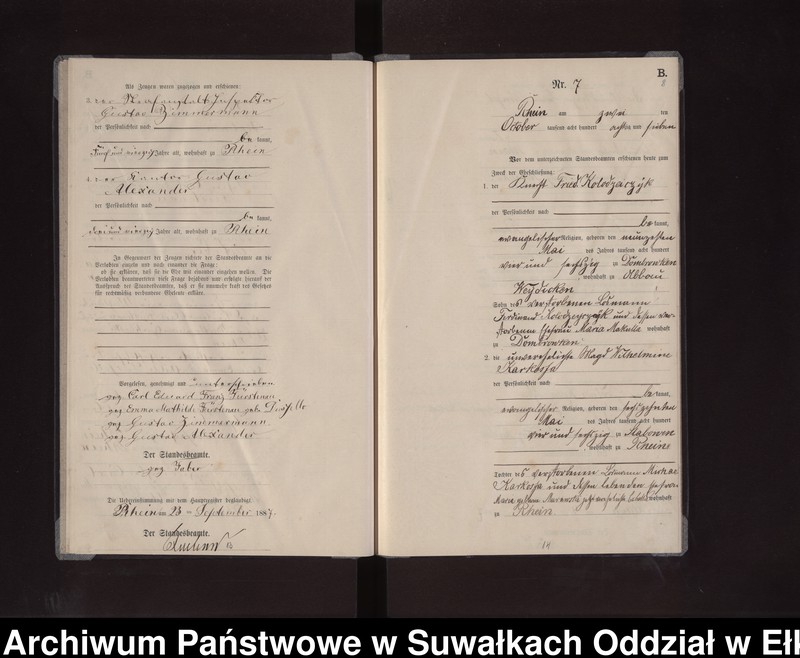 Als Zeugen waren zugezogen und erschienen:
3. der Strafanstalts Inspektor
Gustav Zimmermann
der Persönlichkeit nach
be kannt,
fünf und vierzig Jahre alt, wohnhaft zu Rhein
4. der Kantor Gustav
Alexander
der Persönlichkeit nach
be kannt,
drei und vierzig Jahre alt, wohnhaft zu Rhein
In Gegenwart der Zeugen richtete der Standesbeamte an die
Verlobten einzeln und nach einander die Frage:
ob sie erklären, daß sie die Ehe mit einander eingehen wollen. Die
Verlobten beantworteten diese Frage bejahend und erfolgte hierauf der
Ausspruch des Standesbeamten, daß er sie nunmehr kraft des Gesetzes
für rechtmäßig verbundene Eheleute erkläre.
Vorgelesen, genehmigt und unterschrieben
gez. Carl Eduard Franz Fürstenau
gez. Emma Mathilde Fürstenau geb.
gez. Gustav Zimmermann
gez. Gustav Alexander
Der Standesbeamte.
gez. Faber
Die Uebereinstimmung mit dem Hauptregister beglaubigt
Rhein am 23 ten September 1887.
Der Standesbeamte.
B.
8
Nr. 7
Rhein am zehn ten
October tausend acht hundert achtzig und sieben
Vor dem unterzeichneten Standesbeamten erschienen heute zum
Zweck der Eheschließung:
1. der Knecht Fried. Kolodzarzyk
der Persönlichkeit nach
be kannt,
evangelischer Religion, geboren den neunzehnten
Mai des Jahres tausend acht hundert
vier und sechszig zu Dombrowken
, wohnhaft zu Abbau
Weydicken
Sohn des verstorbenen Losmann
Ferdinand Kolodzeyczyk und dessen ver-
storbenen Ehefrau Maria Makulla wohnhaft
zu Dombrowken
2. die unverehelichte Magd Wilhelmine
Karkossa
der Persönlichkeit nach
be kannt,
evangelischer Religion, geboren den sechszehnten
Mai des Jahres tausend acht hundert
vier und sechszig zu Slabowen
, wohnhaft zu Rhein
Tochter des verstorbenen Losmann Michael
Karkossa und dessen lebenden Ehefrau
Maria gebornen jetzt verehelichte wohnhaft
zu Rhein
14
Archiwum Państwowe w Suwałkach Oddział w Ełk